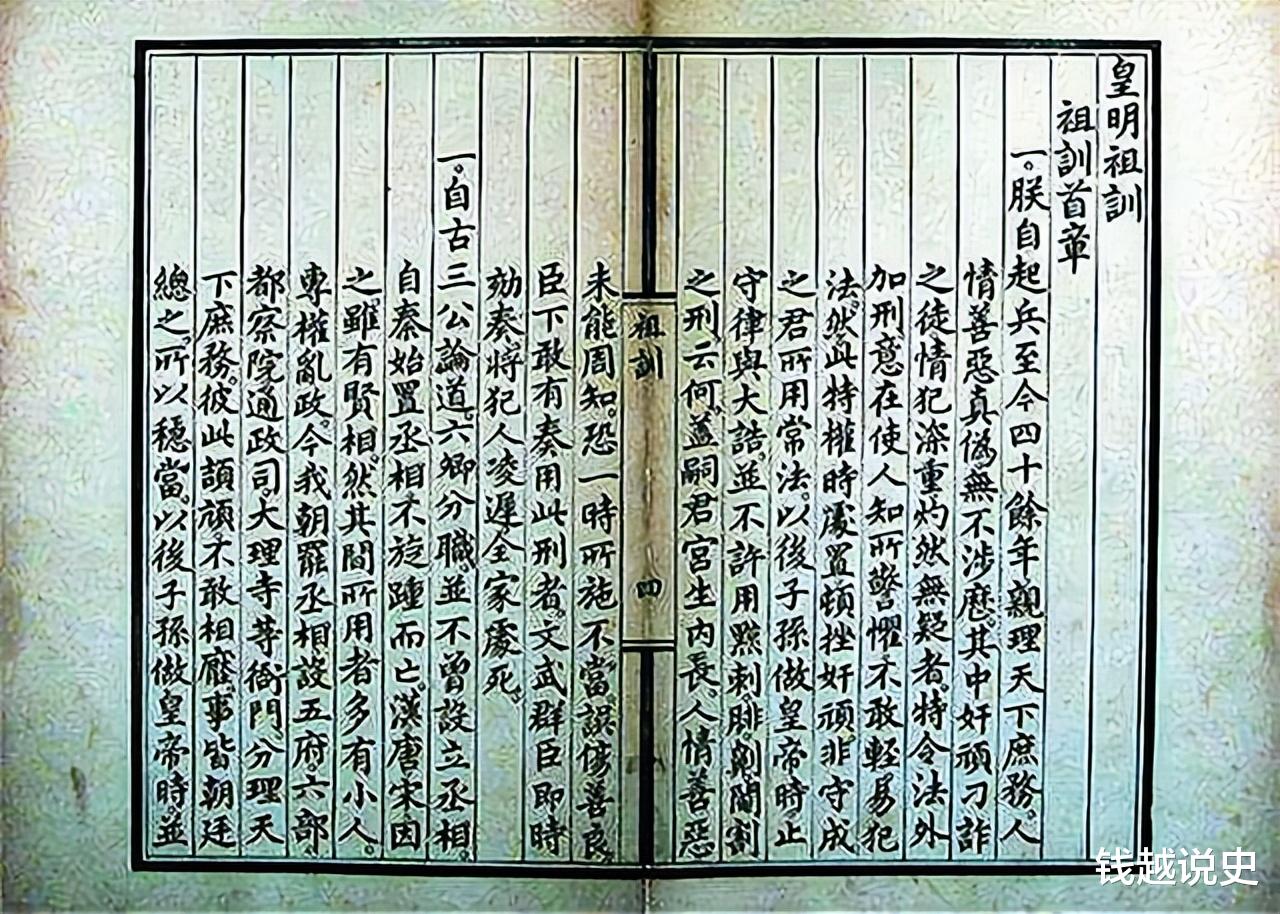 皇明祖訓
祖訓首章
一。朕自起兵至今四十餘年。親理天下庶務。人
情善惡真偽。無不涉歷。其中奸頑刁詐
之徒。情犯深重。灼然無疑者。特令法外
加刑。意在使人知所警懼。不敢輕易犯
法。然此特權時處置。頓挫奸頑。非守成
之君所用常法。以後子孫做皇帝時。止
守律與大誥。並不許用黥刺。腓。劓。閹割
之刑。云何。蓋嗣君宮生內長。人情善惡
未能周知。恐一時所施不當。誤傷善良。
臣下敢有奏用此刑者。文武群臣即時
劾奏。將犯人凌遲。全家處死。
一。自古三公論道。六卿分職。並不曾設立丞相。
自秦始置丞相。不旋踵而亡。漢唐宋因
之。雖有賢相。然其間所用者多有小人。
專權亂政。今我朝罷丞相。設五府。六部。
都察院。通政司。大理寺等衙門。分理天
下庶務。彼此頡頏。不敢相壓。事皆朝廷
總之。所以穩當。以後子孫做皇帝時。並
祖訓
四
钱越说史